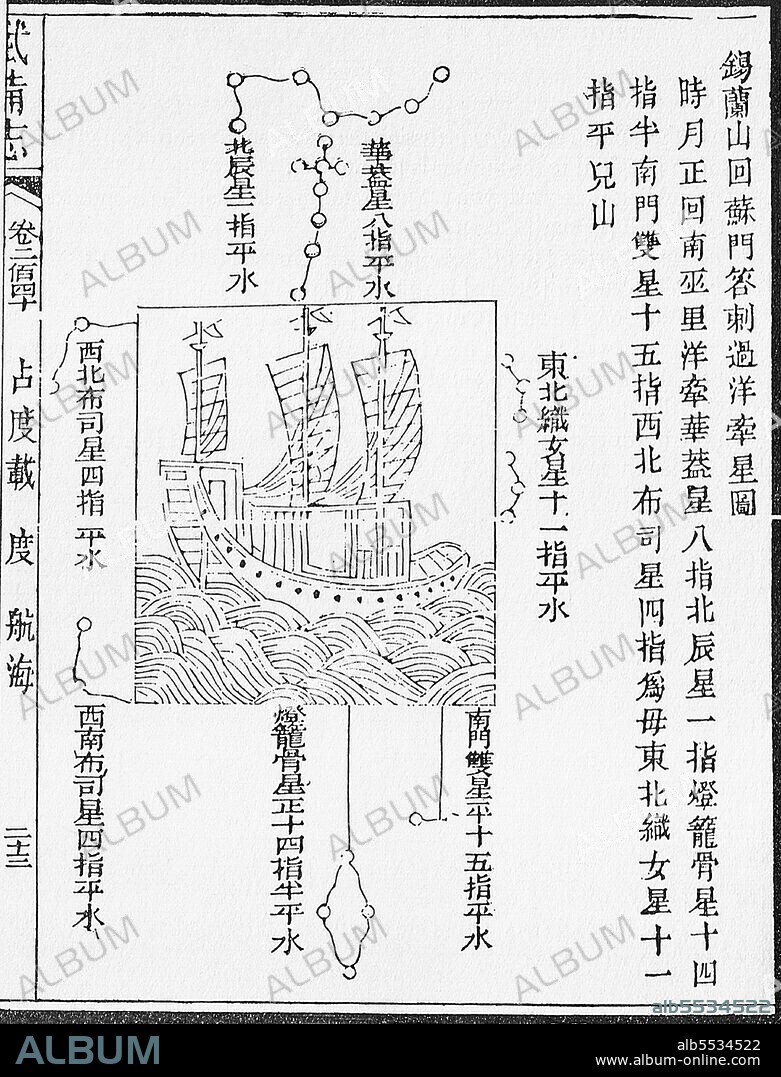 錫蘭山回蘇門答剌過洋牽星圖
時月正回南巫里洋牽華蓋星八指北辰星一指燈籠骨星十四
指半南門雙星十五指西北布司星四指為母東北織女星十一
指平兒山
華蓋星八指平水
北辰星一指平水
東北織女星十一指平水
西北布司星四指平水
南門雙星平十五指平水
燈籠骨星正十四指半平水
西南布司星四指平水
武備志
卷二百四十
占度載
度
航海
二十三
ALBUM
alb5534522
ALBUM
alb5534522
www.album-online.com